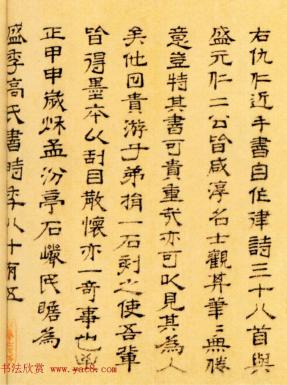 右仇仁近手書自作律詩三十八首與
盛元仁二公皆咸淳名士觀其筆筆無勝
意豈特其書可貴重哉亦可以見其為人
矣他因貴游子弟捐一石刻之使吾輩
皆得墨本以刮目散懷亦一奇事也
正甲申歲秌孟汾亭石巖民瞻為
盛季高氏書時年八十有五
书法欣赏 www.yac8.com